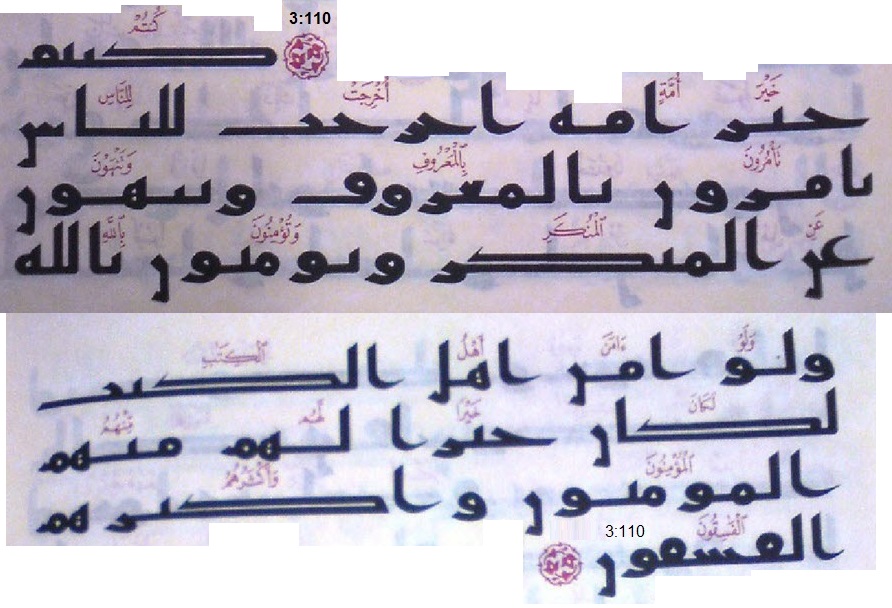 3:110
كُنتُمْ
كنتم
خَيْرَ أُمَّةٍ أُخْرِجَتْ لِلنَّاسِ
خير امه اخرجت للناس
تَأْمُرُونَ بِٱلْمَعْرُوفِ وَتَنْهَوْنَ
تامرون بالمعروف وتنهون
عَنِ ٱلْمُنكَرِ وَتُؤْمِنُونَ بِٱللَّهِ
عن المنكر وتومنون بالله
وَلَوْ ءَامَنَ أَهْلُ ٱلْكِتَٰبِ
ولو امن اهل الكتب
لَكَانَ خَيْرًا لَّهُم مِّنْهُمُ
لكان خيرا لهم منهم
ٱلْمُؤْمِنُونَ وَأَكْثَرُهُمُ
المومنون واكثرهم
ٱلْفَٰسِقُونَ 3:110
الفسقون